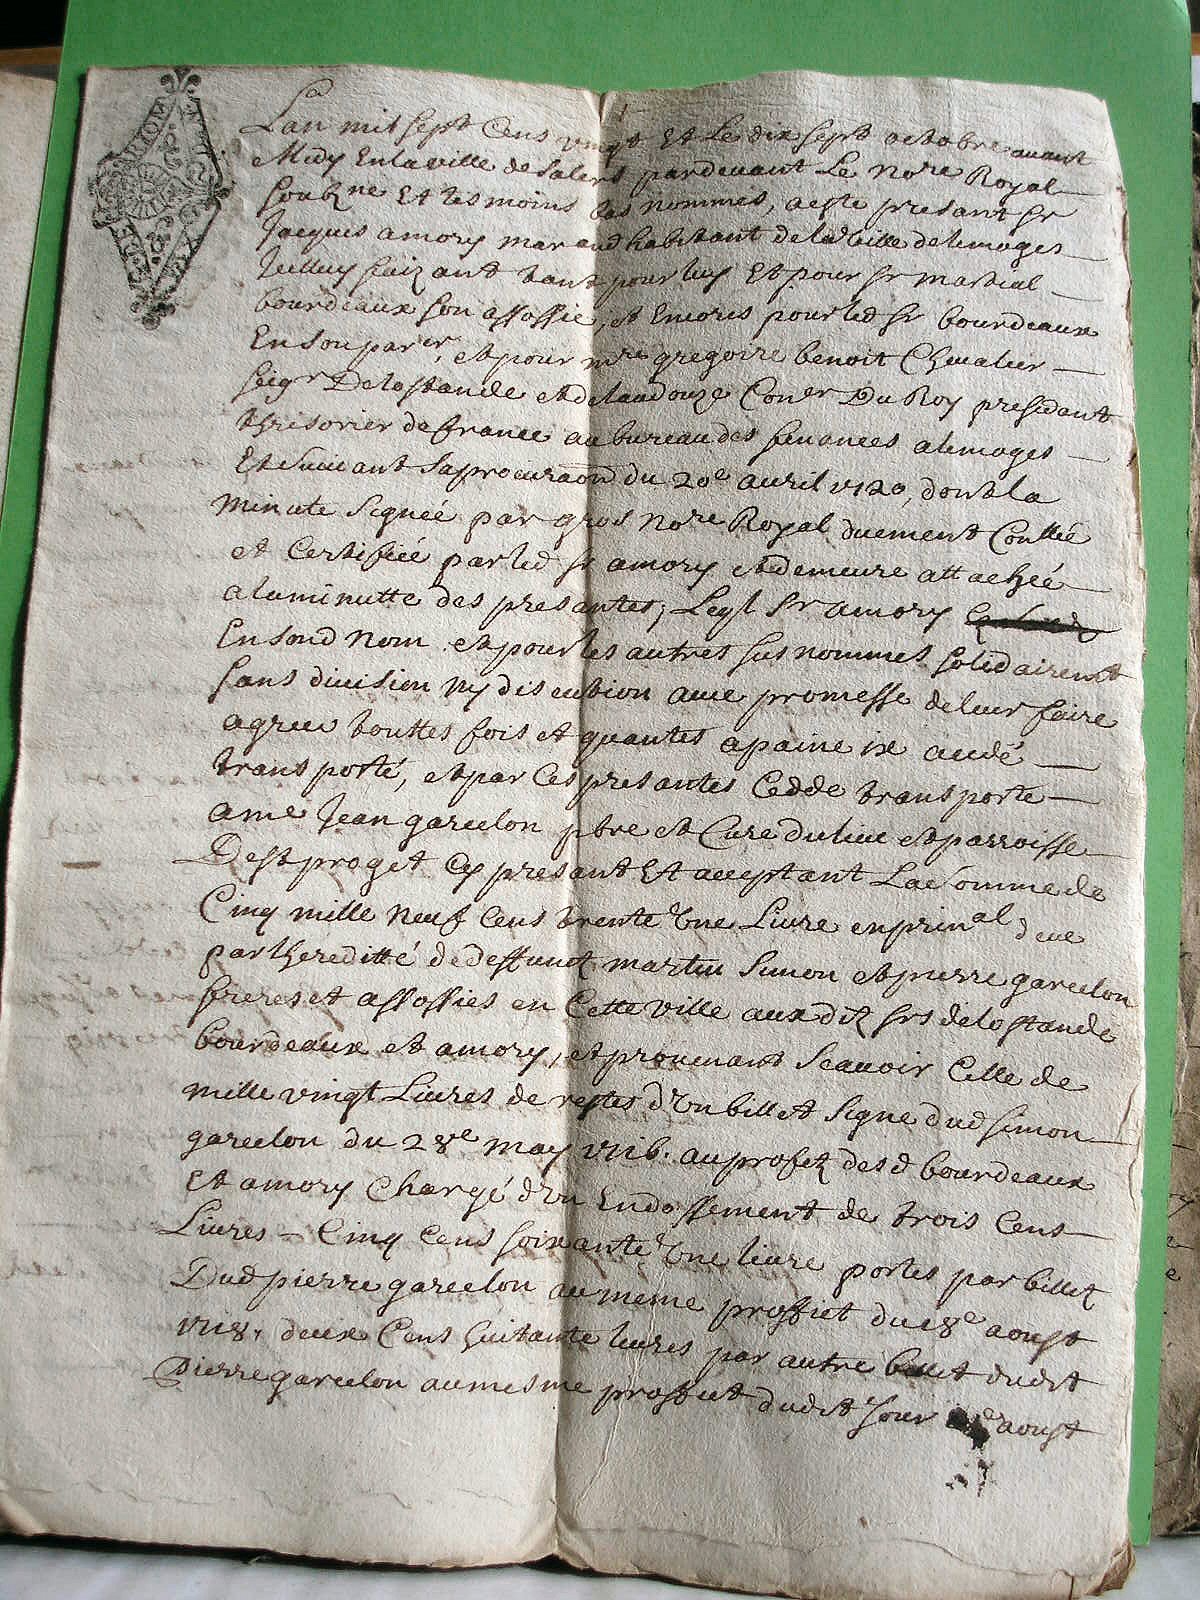 Lan mil sept Cens vingt Et Le dix sept octobre avant
Midy En la ville de Salers pardevant Le No.re Royal
soubz.ne Et tesmoins bas nommes, a este presant Sr
Jacques amory marand habitant de la ville de limoges
Jcelluy faizant tant pour luy Et pour Sr martial
bourdeaux son assossie, et Encores pour led Sr bourdeaux
En son par.er, et pour m.re gregoire benoit Chevalier
seig.r De lostande et de laudouze Con.er Du Roy presidant
thresorier de france au bureau des finances a limoges
Et suivant sa procuraon du 20e avril 1720, dont la
minute signée par gros No.re Royal duement Conllée
et Certifiée par led Sr amory et demeure attachée
a la minutte des presantes; Leql Sr amory
En soud Nom et pour les autres sus nommes solidairem.t
sans division ny discution avec promesse de leur faire
agreer touttes fois et quantes a paine
transporté, et par Ces presantes Cedde transporte
a me Jean garcelon ptre et Cure du lieu et parroisse
De st proget Cy presant Et acceptant La somme de
Cinq mille neuf Cens trente Une Livre en prin.al deue
par lhereditté de deffunct martin Simon et pierre garcelon
freres et assossies en Cette ville aux ditz Srs de lostande
Bourdeaux et amory, et provenant Scavoir Celle de
mille vingt Livres de restes d'Un billet Signe dud Simon
garcelon du 28e may 1716. au profet desd bourdeaux
Et amory Chargé d'Un Endossement de trois Cens
Livres - Cinq Cens soixante Une livre portes par billet
Dud pierre garcelon au meme proffiet du 18e aoust
1718, deux Cens huitante livres par autre billet dudit
Pierre garcelon au mesme proffiet dudit Jour aoust